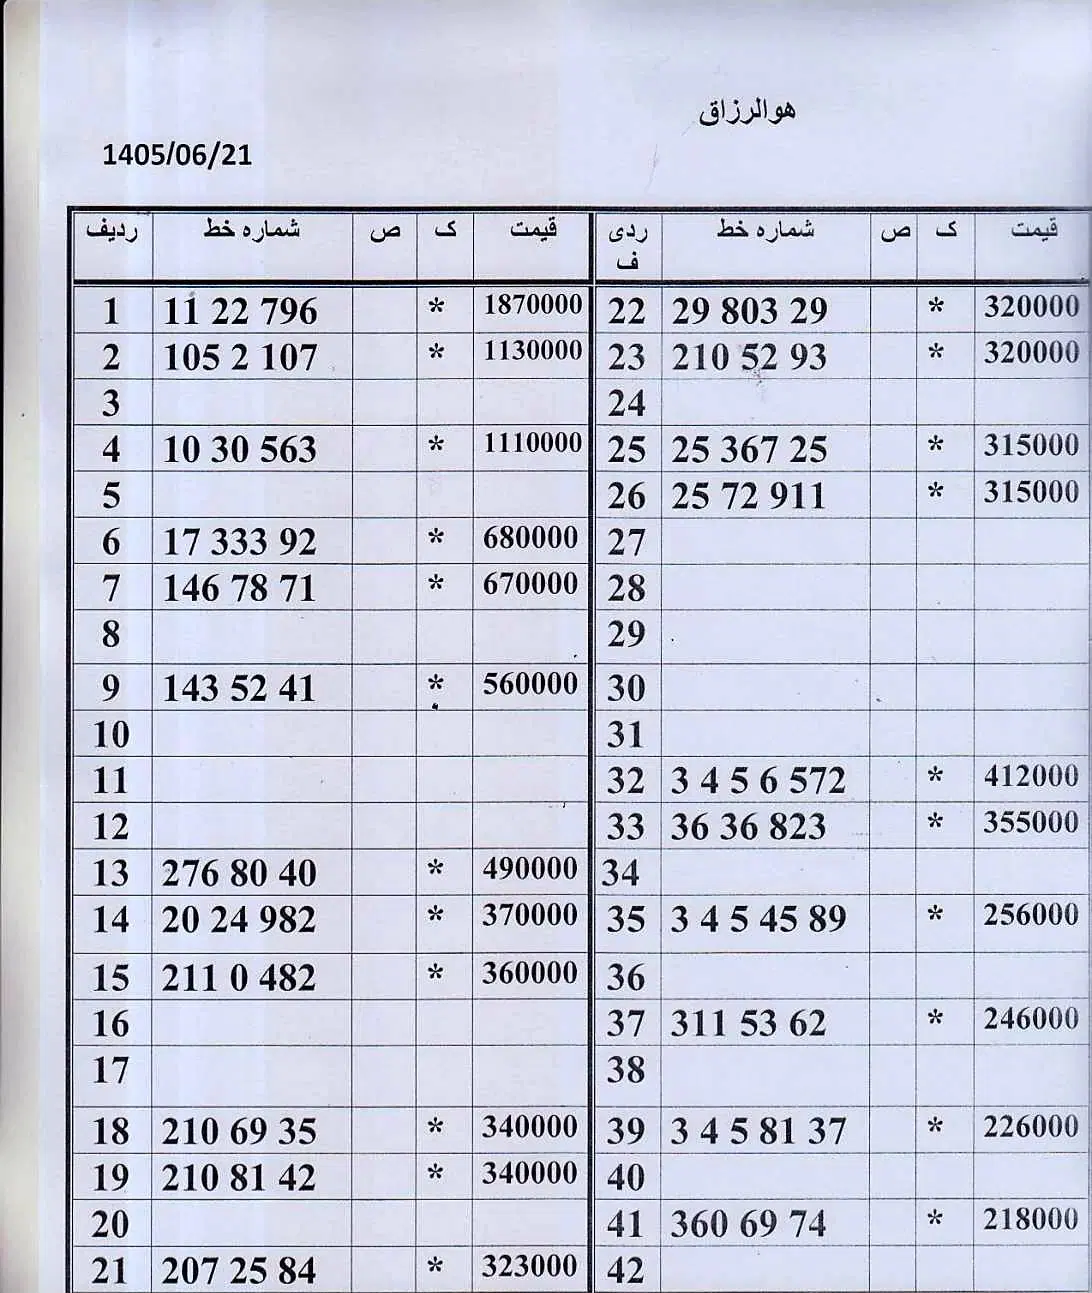 هوالرزاق
1405/06/21
ردیف شماره خط ص ک قیمت ردیف شماره خط ص ک قیمت
1 11 22 796 * 1870000 22 29 803 29 * 320000
2 105 2 107 * 1130000 23 210 52 93 * 320000
3 24
4 10 30 563 * 1110000 25 25 367 25 * 315000
5 26 25 72 911 * 315000
6 17 333 92 * 680000 27
7 146 78 71 * 670000 28
8 29
9 143 52 41 * 560000 30
10 31
11 32 3 4 5 6 572 * 412000
12 33 36 36 823 * 355000
13 276 80 40 * 490000 34
14 20 24 982 * 370000 35 3 4 5 45 89 * 256000
15 211 0 482 * 360000 36
16 37 311 53 62 * 246000
17 38
18 210 69 35 * 340000 39 3 4 5 81 37 * 226000
19 210 81 42 * 340000 40
20 41 360 69 74 * 218000
21 207 25 84 * 323000 42